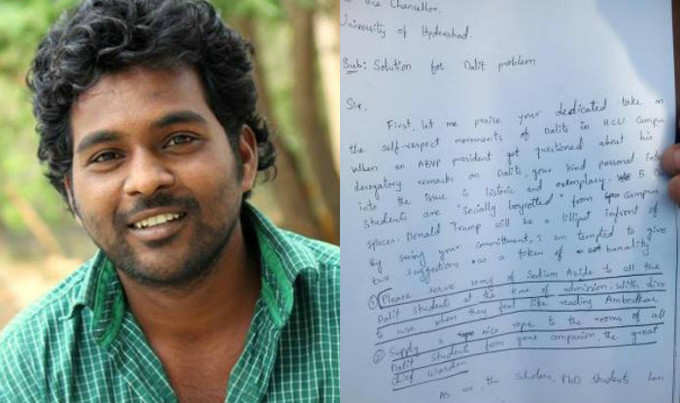 Vice Chancellor,
University of Hyderabad.
Sub: Solution for Dalit problem
Sir,
First, let me praise your dedicated take on
the self-respect movements of Dalits in HCU Campus
When an ABVP president got questioned about his
derogatory remarks on Dalits, your kind personal
into the issue is historic and exemplary. 5
students are "socially boycotted" from campus
spaces. Donald Trump will be a lilliput in front of
By seeing your commitment, I am tempted to give
two suggestions as a token of banality
① Please serve 10mg of Sodium Azide to all the
Dalit students at the time of admission. With
to use when they feel like reading Ambedkar
② Supply a nice rope to the rooms of all
Dalit students from your companion, the great
Chief Warden
As we, the scholars, PhD students have